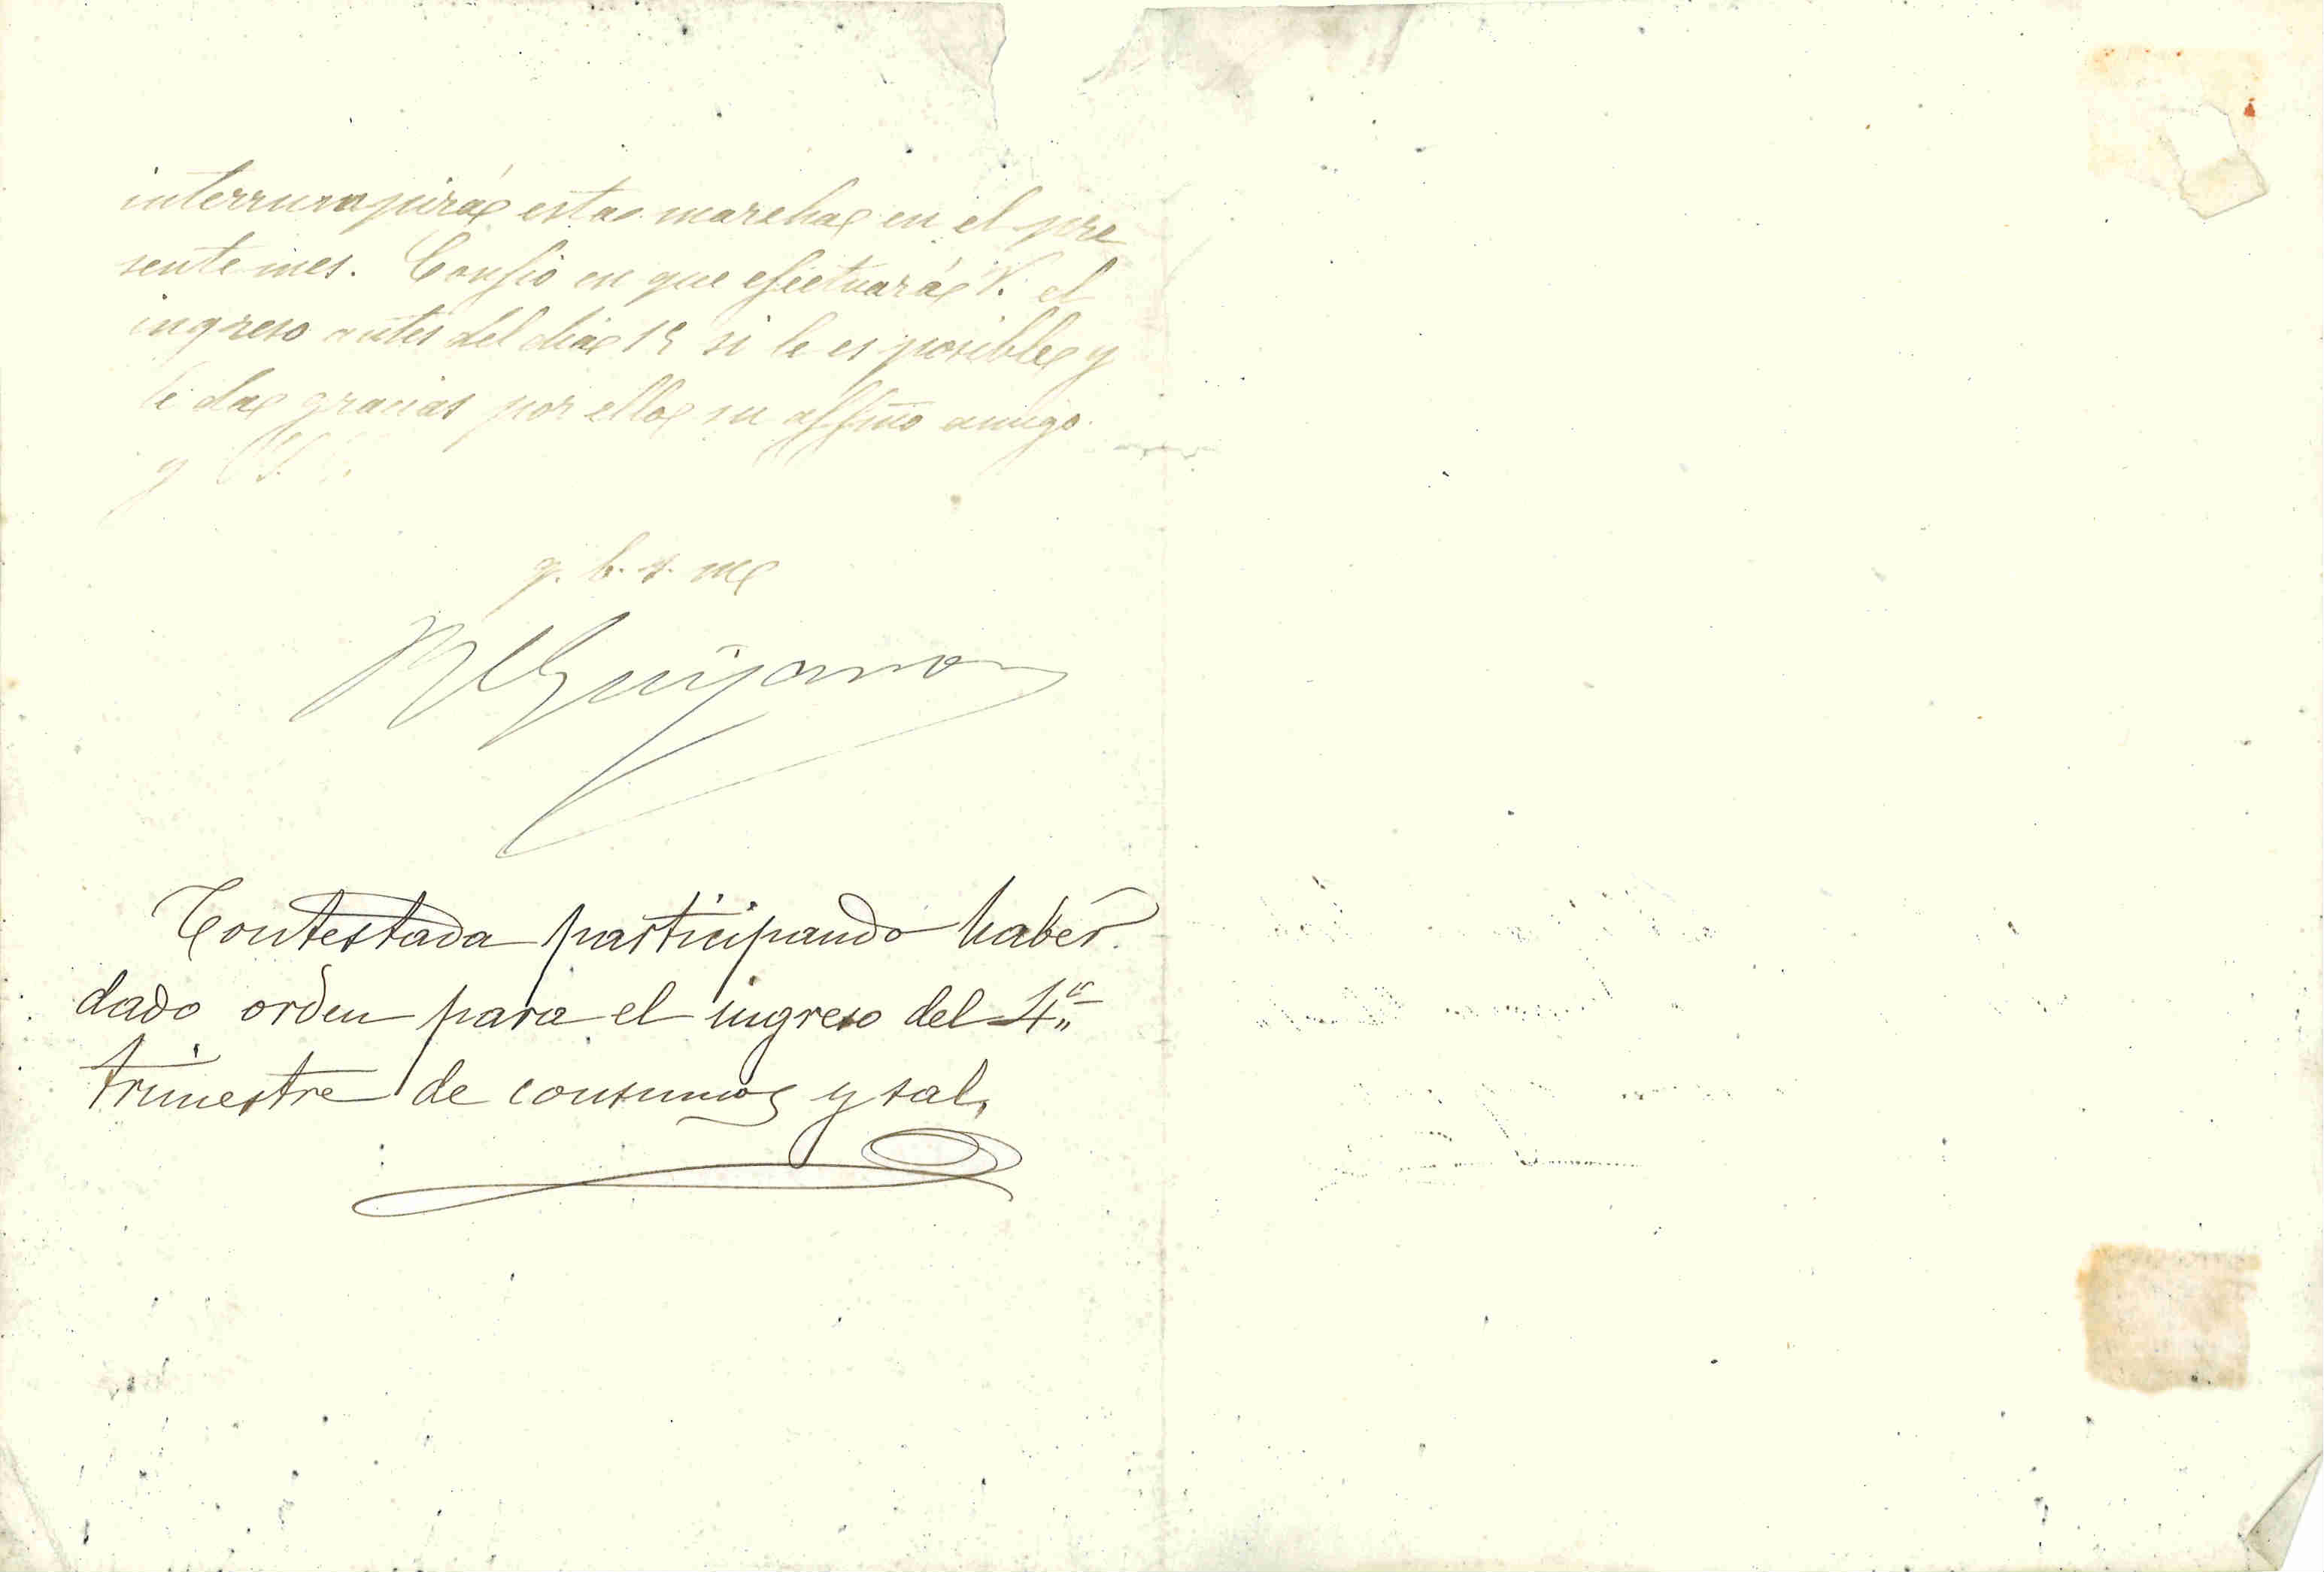 interrumpirá esta marcha en el pre
sente mes. Confio en que efectuará V. el
ingreso antes del dia 15 si le es posible y
le da gracias por ello su affmo amigo
y
q. b. s. m
Contestada participando haber
dado orden para el ingreso del 4º
trimestre de consumos y sal.